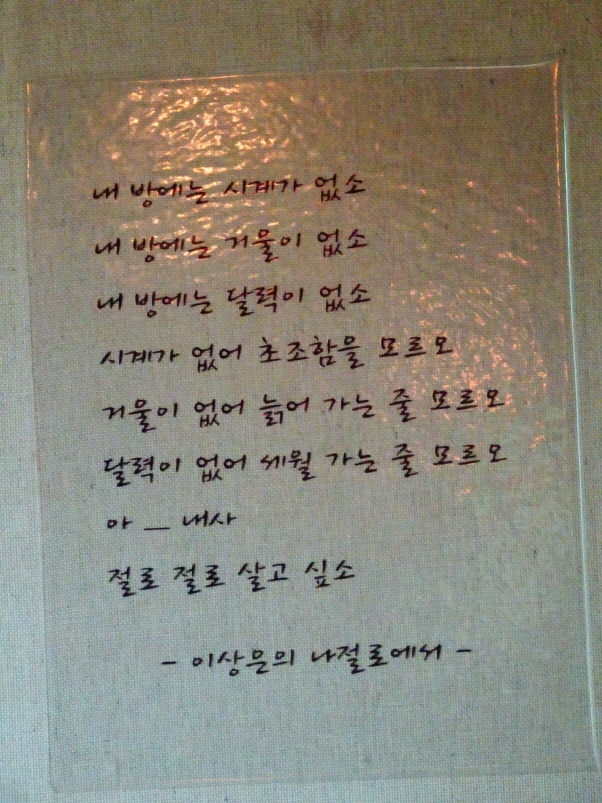 내 방에는 시계가 없소
내 방에는 거울이 없소
내 방에는 달력이 없소
시계가 없어 초조함을 모르오
거울이 없어 늙어 가는 줄 모르오
달력이 없어 세월 가는 줄 모르오
아 _ 내사
절로 절로 살고 싶소
- 이상은의 나절로에서 -